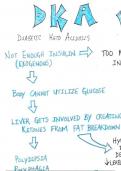 DKA
DIABETIC KETO ACIDOSIS
NOT ENOUGH INSULIN
(EXOGENOUS)
TOO M
IN
BODY CANNOT UTILIZE GLUCOSE
LIVER GETS INVOLVED BY CREATING
KETONES FROM FAT BREAKDOWN
HY
POLYDIPSIA
POLYPHAGIA